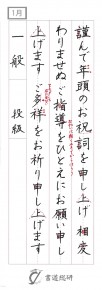 1月
謹んで年頭のお祝詞を申し上げ 相変
わりませぬご指導をひとえにお願い申し
上げます ご多祥をお祈り申し上げます
一般 段級
書道総研